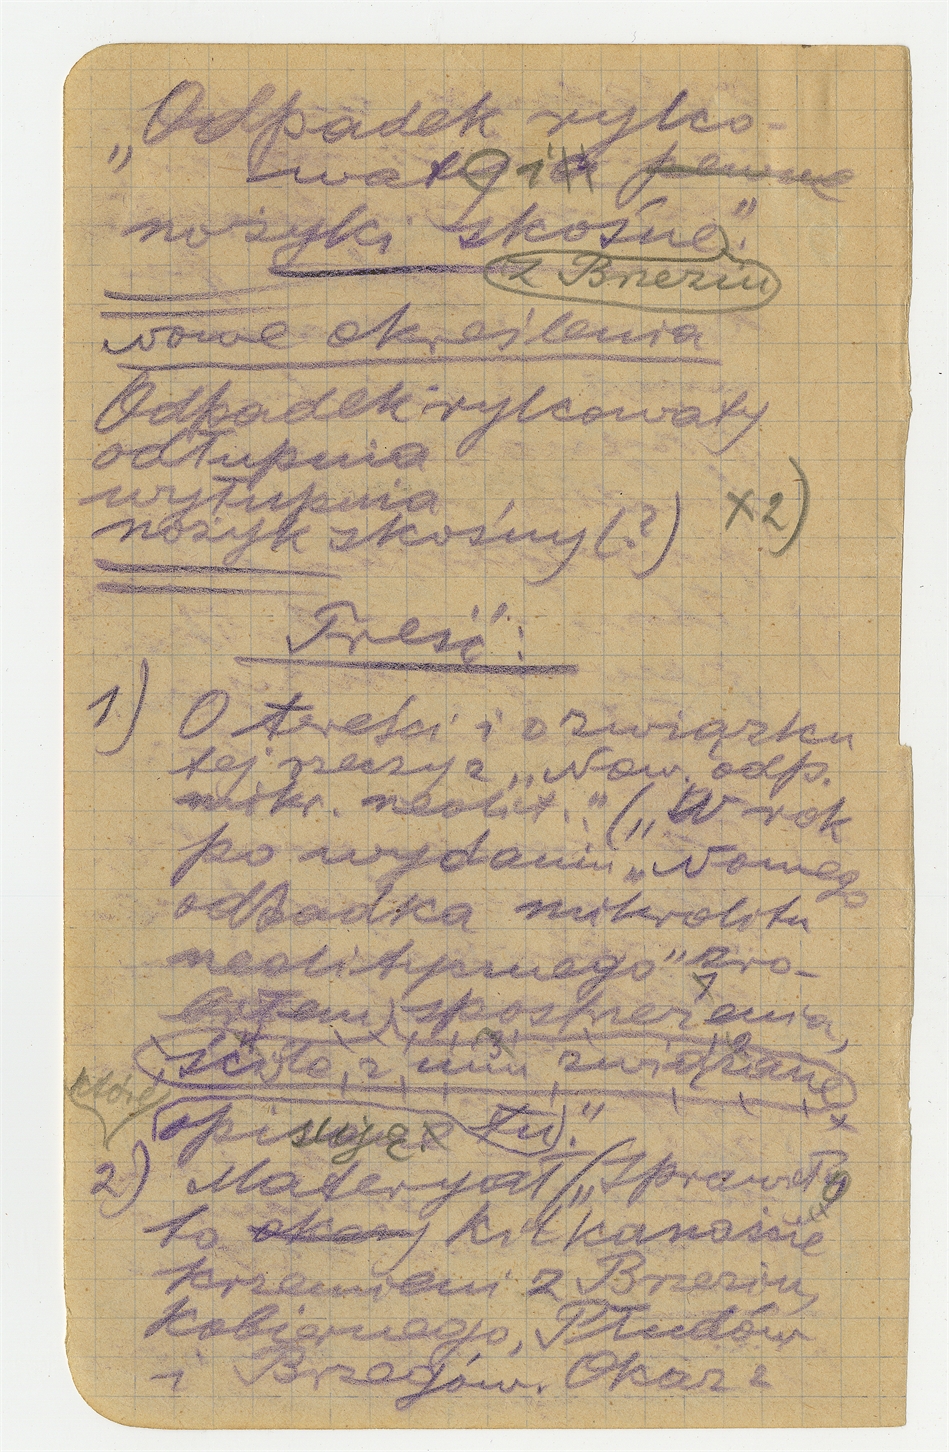 „Odpadek rylco-
waty i pewne
nożyki skośne”
z Brzezin
nowe określenia
Odpadek rylcowaty
odłupnia
wyłupnia
nożyk skośny (?) x2)
Treść:
1) O treści i o związku
tej rzeczy z „Now. odp.
mikr. neolit.” („W rok
po wydaniu „Nowego
odpadka mikrolitu
neolitycznego” zro-
biłem spostrzeżenia,
ściśle z nim związane
które
opisuję tu.”
2) Materyał („Sprawił
to okazy kilkanaście
krzemieni z Brzezin,
Kobiernego, Płudów
i Brzegów. Okaz z